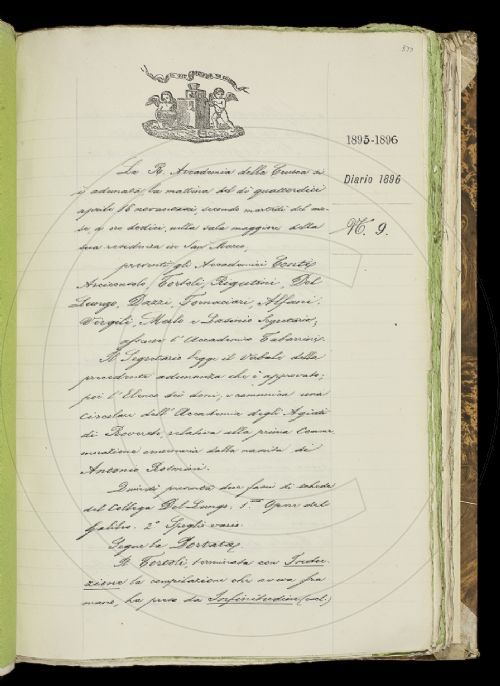 377
1895-1896
Diario 1896
N. 9.
La R. Accademia della Crusca si
è adunata la mattina del dì quattordici
aprile 96 secondo martedì del me-
se, a ore dodici, nella sala maggiore della
sua residenza in San Marco,
presenti gli Accademici Conti
Arciconsolo, Tortoli, Rigutini, Del
Lungo, Dazzi, Tomaciari, Alfani,
Vergili, Merlo e Lasinio Segretario;
assente l'Accademico Tabarrini.
Il Segretario legge il Verbale della
precedente adunanza che è approvato;
poi l'Elenco dei doni, e comunica una
Circolare dell'Accademia degli Agiati
di Rovereto, relativa alla prima Comme-
morazione centenaria dalla nascita di
Antonio Rosmini.
Quindi presenta due fasci di schede
del Collega Del Lungo, 1.° Opere del
Galileo. 2.° Spogli varii.
Segue la Portata.
Il Tortoli, terminata con Inder-
zione la compilazione che aveva fra
mano, ha preso da Infinitudine (escl.)